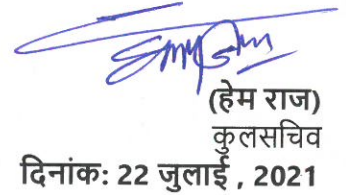 (हेम राज)
कुलसचिव
दिनांक: 22 जुलाई , 2021